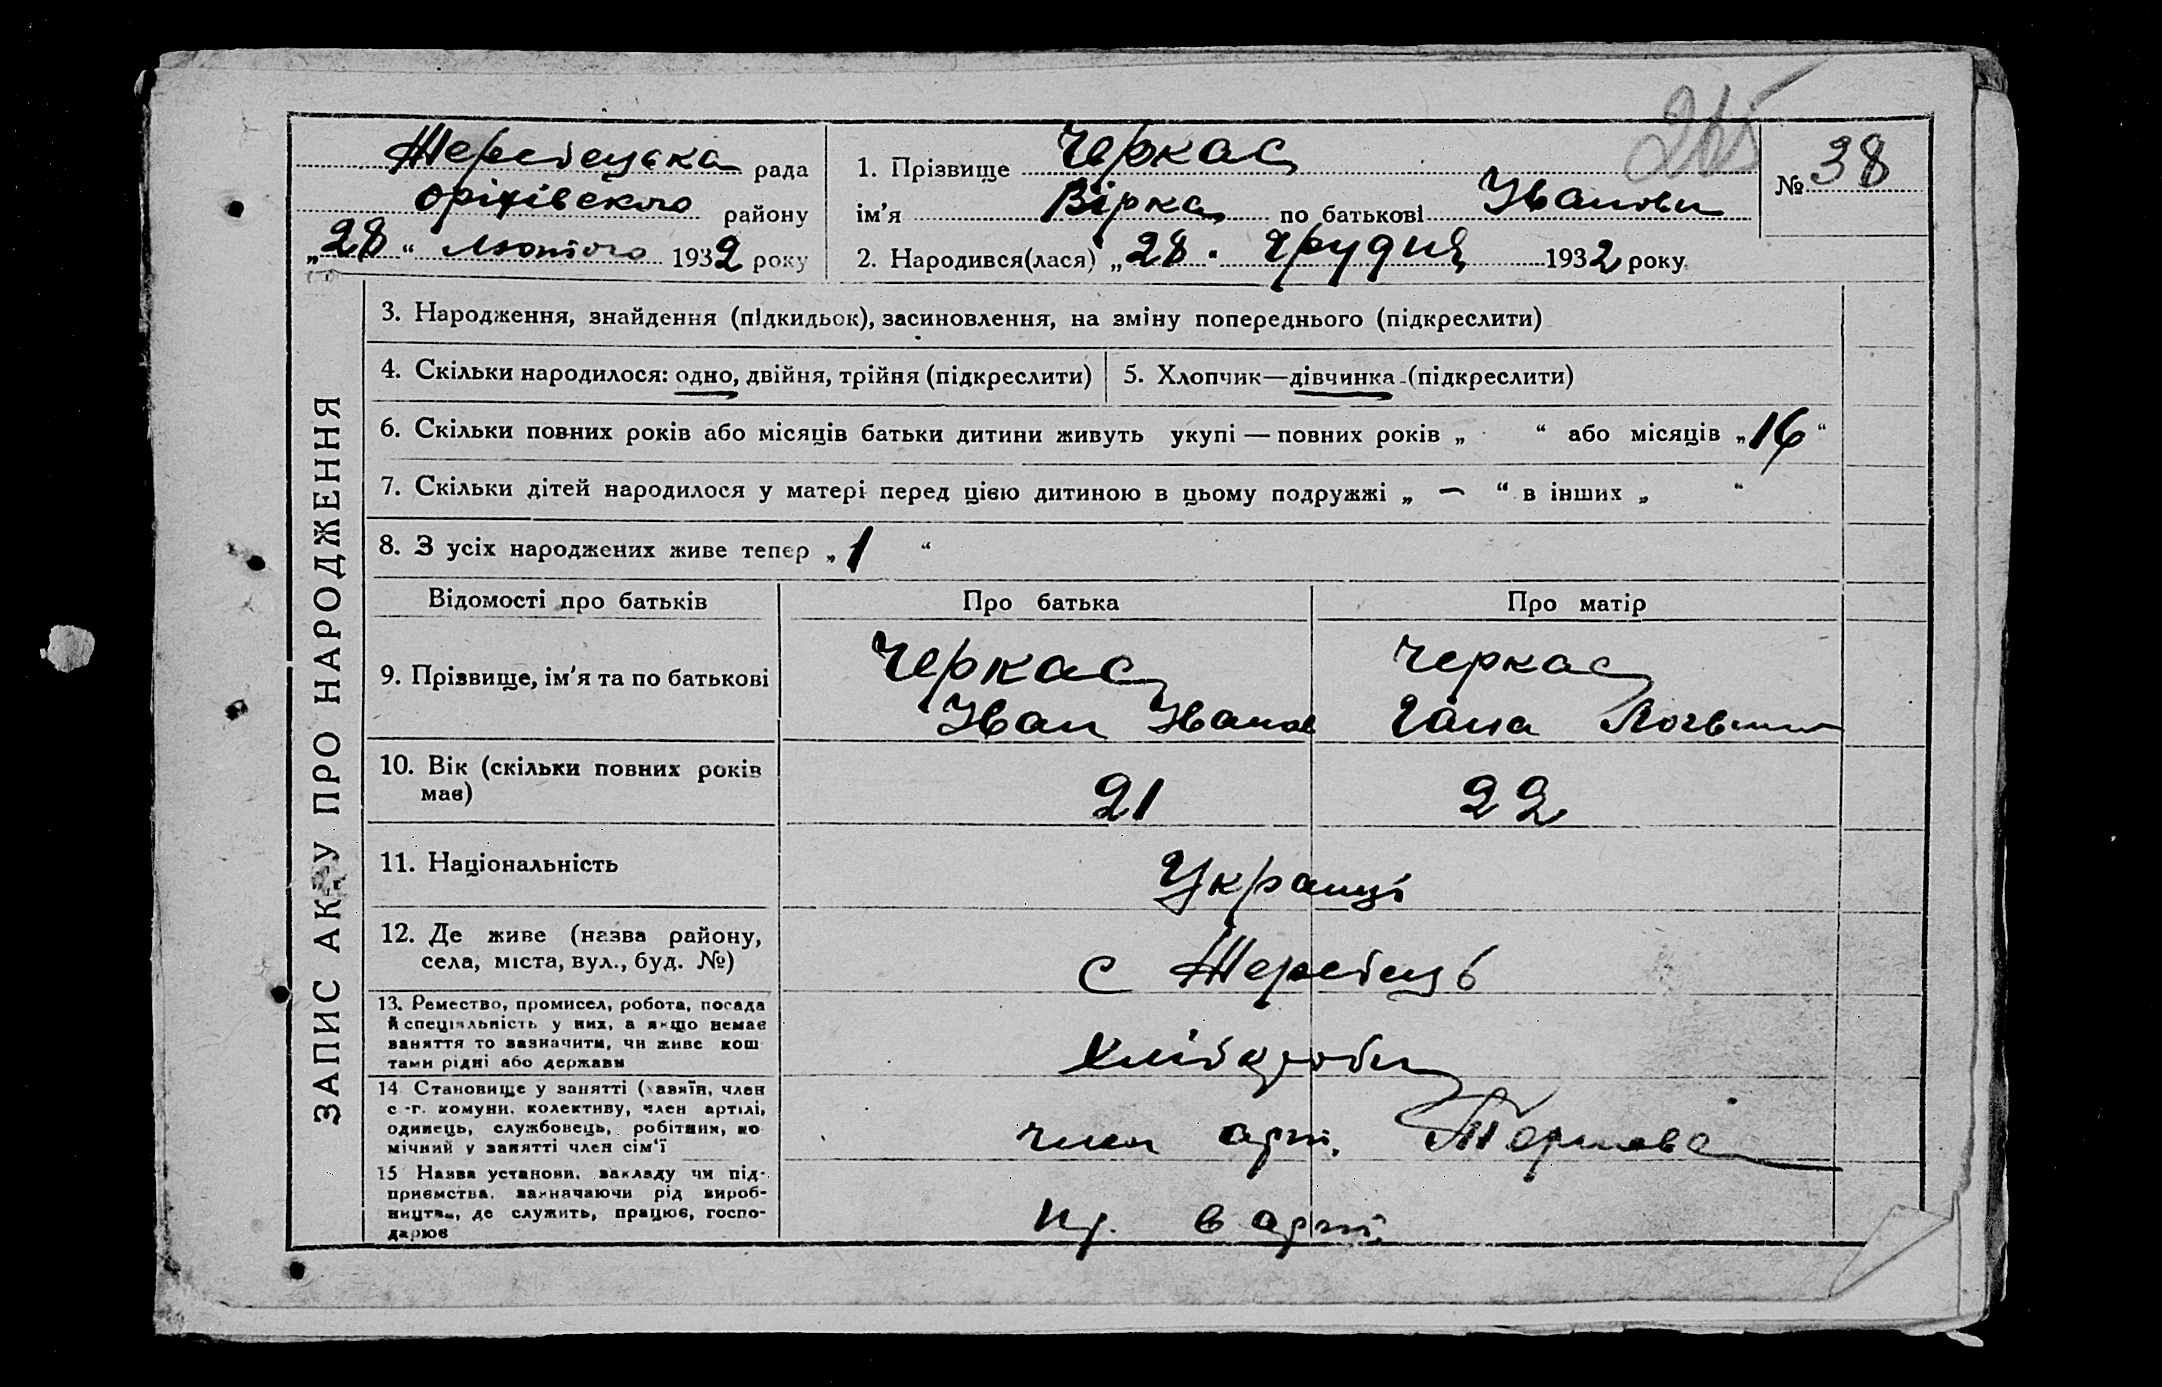 265
Жеребецька рада
Оріхівського району
„28“ Лютого 1932 року
1. Прізвище Черкас
№ 38
ім'я Вірка по батькові Іванови
2. Народився(лася) „28“ Грудня 1932 року
ЗАПИС АКТУ ПРО НАРОДЖЕННЯ
3. Народження, знайдення (підкидьок), засиновлення, на зміну попереднього (підкреслити)
4. Скільки народилося: одно, двійня, трійня (підкреслити)
5. Хлопчик—дівчинка (підкреслити)
6. Скільки повних років або місяців батьки дитини живуть укупі — повних років „ “ або місяців „16“
7. Скільки дітей народилося у матері перед цією дитиною в цьому подружжі „ — “ в інших „ “
8. З усіх народжених живе тепер „1 “
Відомості про батьків
Про батька
Про матір
9. Прізвище, ім'я та по батькові
Черкас
Іван Іванов
Черкас
Гана Логвин
10. Вік (скільки повних років
має)
21
22
11. Національність
Українці
12. Де живе (назва району,
села, міста, вул., буд. №)
с Жеребець
13. Ремество, промисел, робота, посада
й спеціяльність у них, а якщо немає
заняття то зазначити, чи живе кош
тами рідні або держави
Хлібороби
14 Становище у занятті (хазяїн, член
с.-г. комуни, колективу, член артілі,
одинець, службовець, робітник, по
мічний у занятті член сім'ї
член арт.
15 Назва установи, закладу чи під-
приємства, зазначаючи рід вироб-
ництва, де служить, працює, госпо-
дарює
пр. в арт.